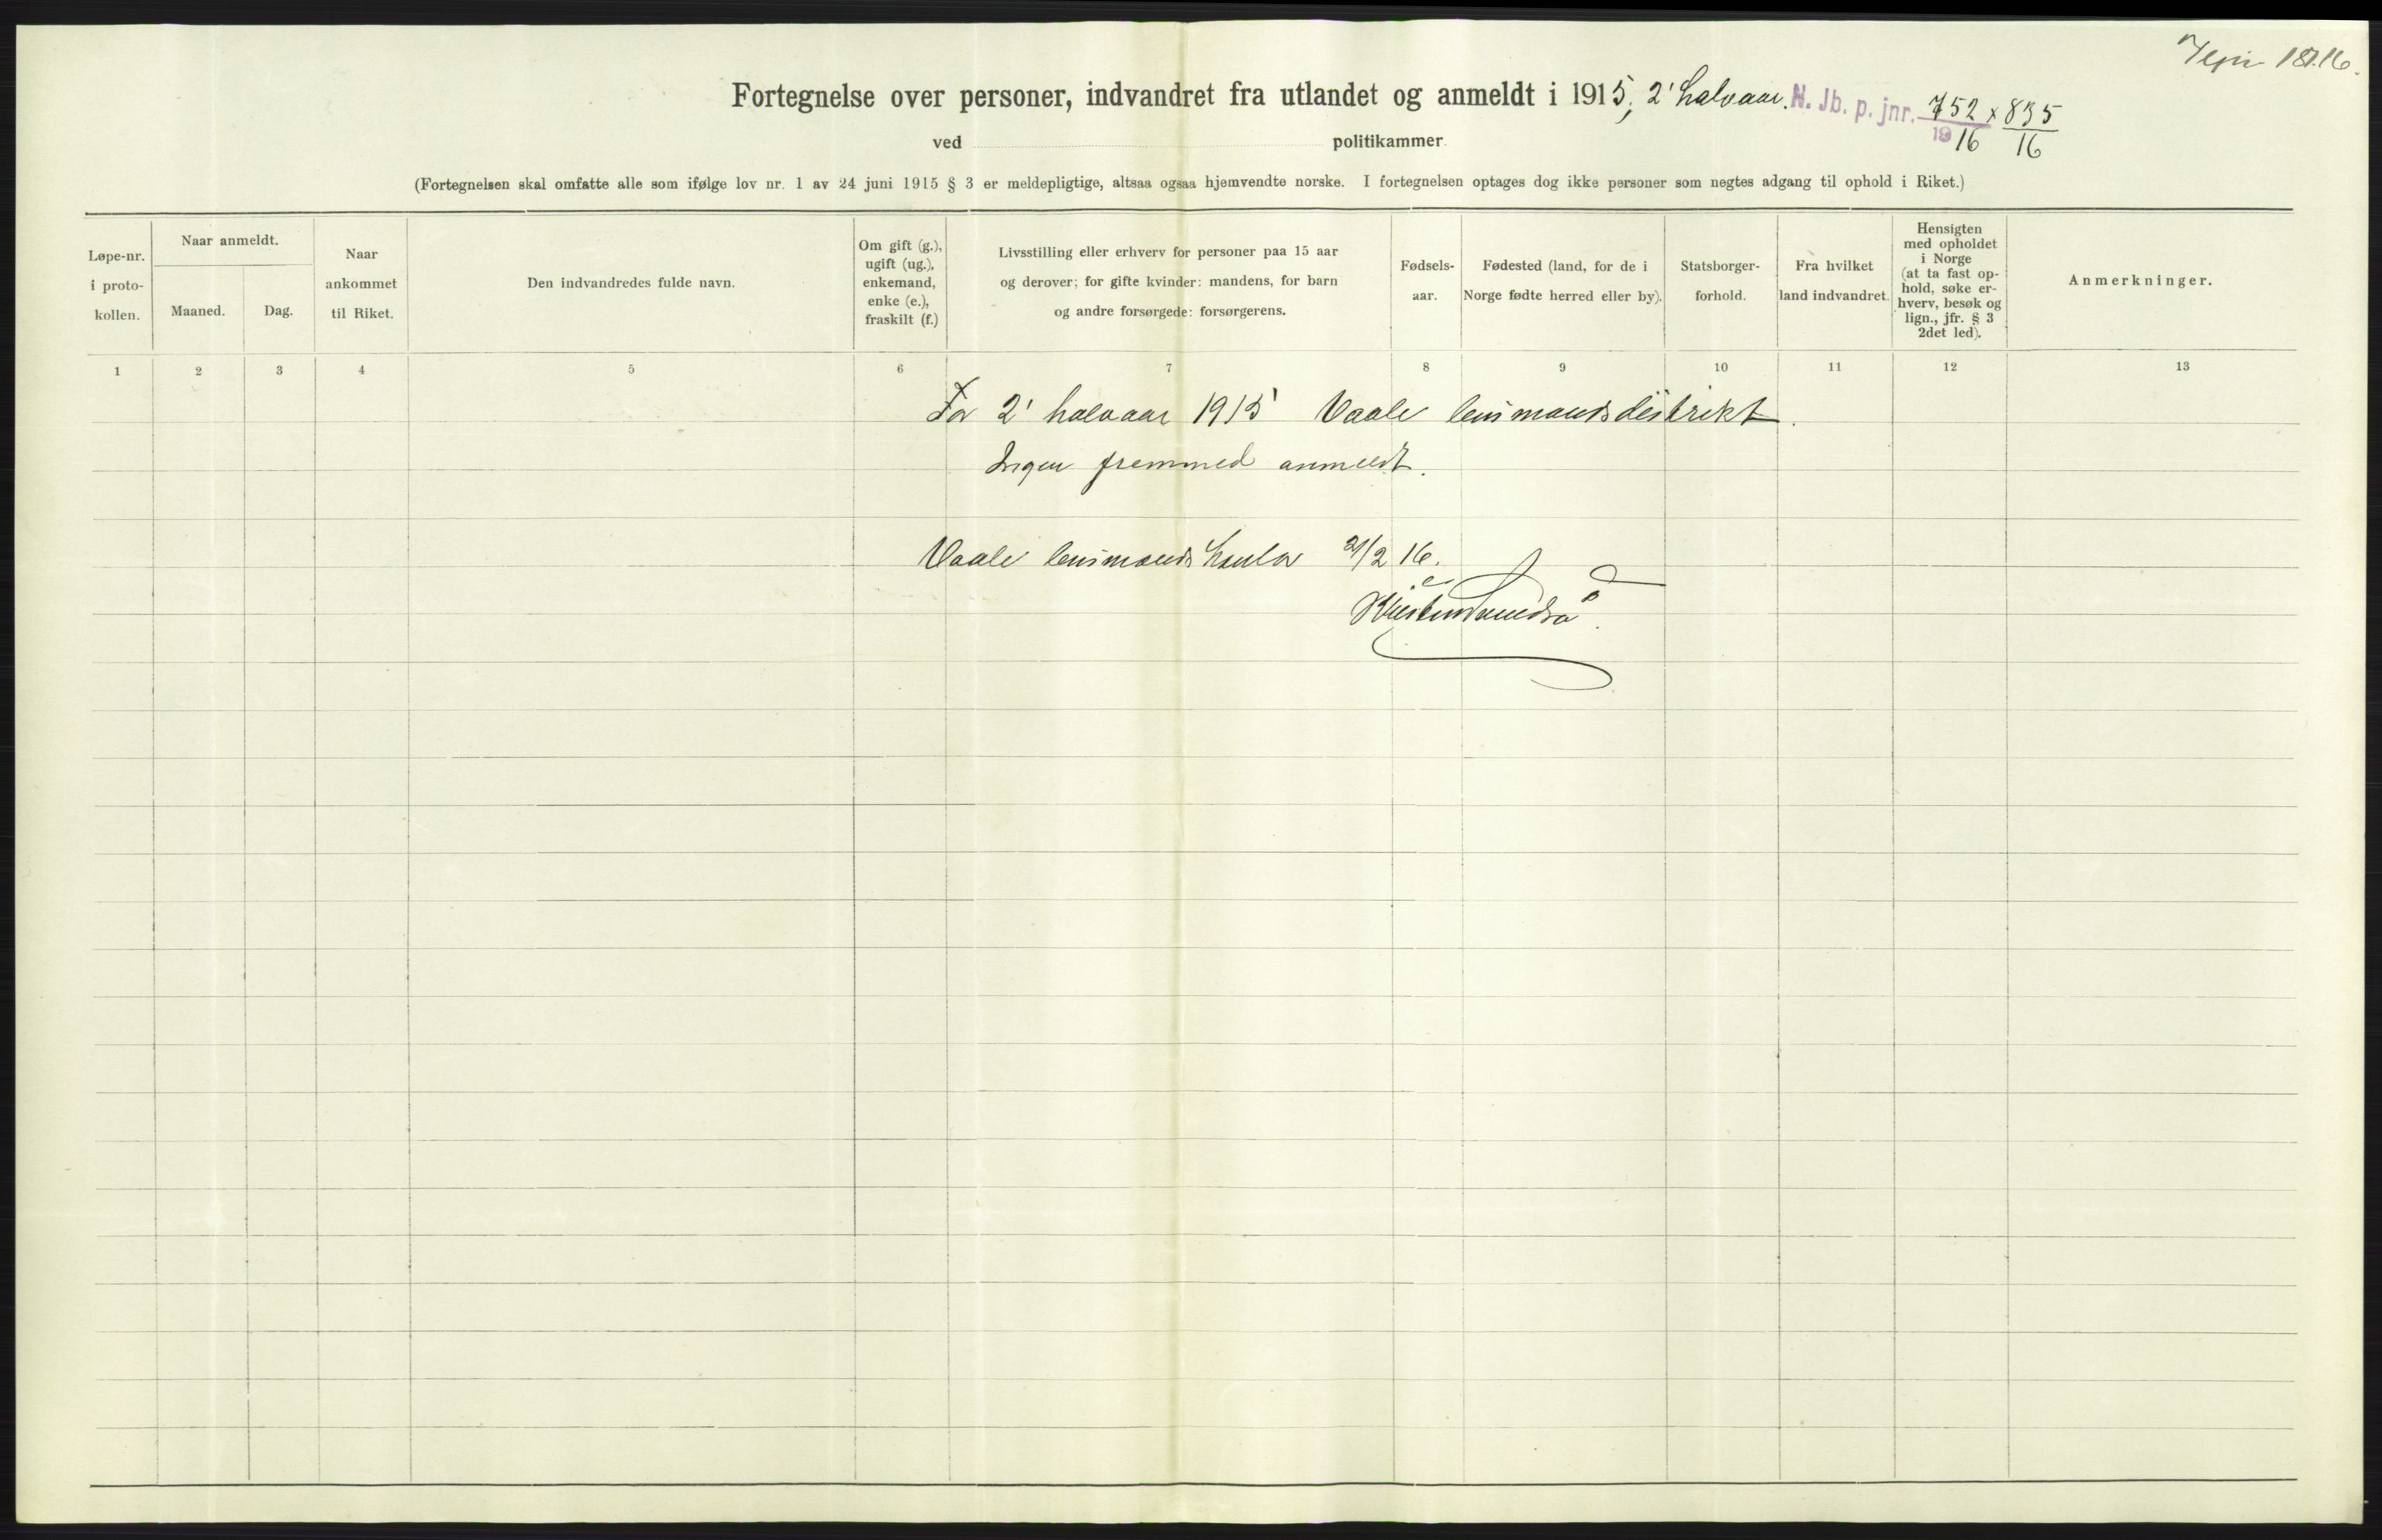 187.16.
Fortegnelse over personer, indvandret fra utlandet og anmeldt i 1915, 2' halvaar. N. Jb. p. jnr. 752 x 835
1916 16
ved politikammer
(Fortegnelsen skal omfatte alle som ifølge lov nr. 1 av 24 juni 1915 § 3 er meldepligtige, altsaa ogsaa hjemvendte norske. I fortegnelsen optages dog ikke personer som negtes adgang til ophold i Riket.)
Løpe-nr.
i proto-
kollen.
Naar anmeldt.
Maaned.
Dag.
Naar
ankommet
til Riket.
Den indvandredes fulde navn.
Om gift (g.),
ugift (ug.),
enkemand,
enke (e.),
fraskilt (f.)
Livsstilling eller erhverv for personer paa 15 aar
og derover; for gifte kvinder: mandens, for barn
og andre forsørgede: forsørgerens.
Fødsels-
aar.
Fødested (land, for de i
Norge fødte herred eller by).
Statsborger-
forhold.
Fra hvilket
land indvandret.
Hensigten
med opholdet
i Norge
(at ta fast op-
hold, søke er-
hverv, besøk og
lign., jfr. § 3
2det led).
Anmerkninger.
1 2 3 4 5 6 7 8 9 10 11 12 13
For 2' halvaar 1915 Vaale lensmandsdistrikt.
Ingen fremmed anmeldt.
Vaale lensmands kontor 21/2 16.